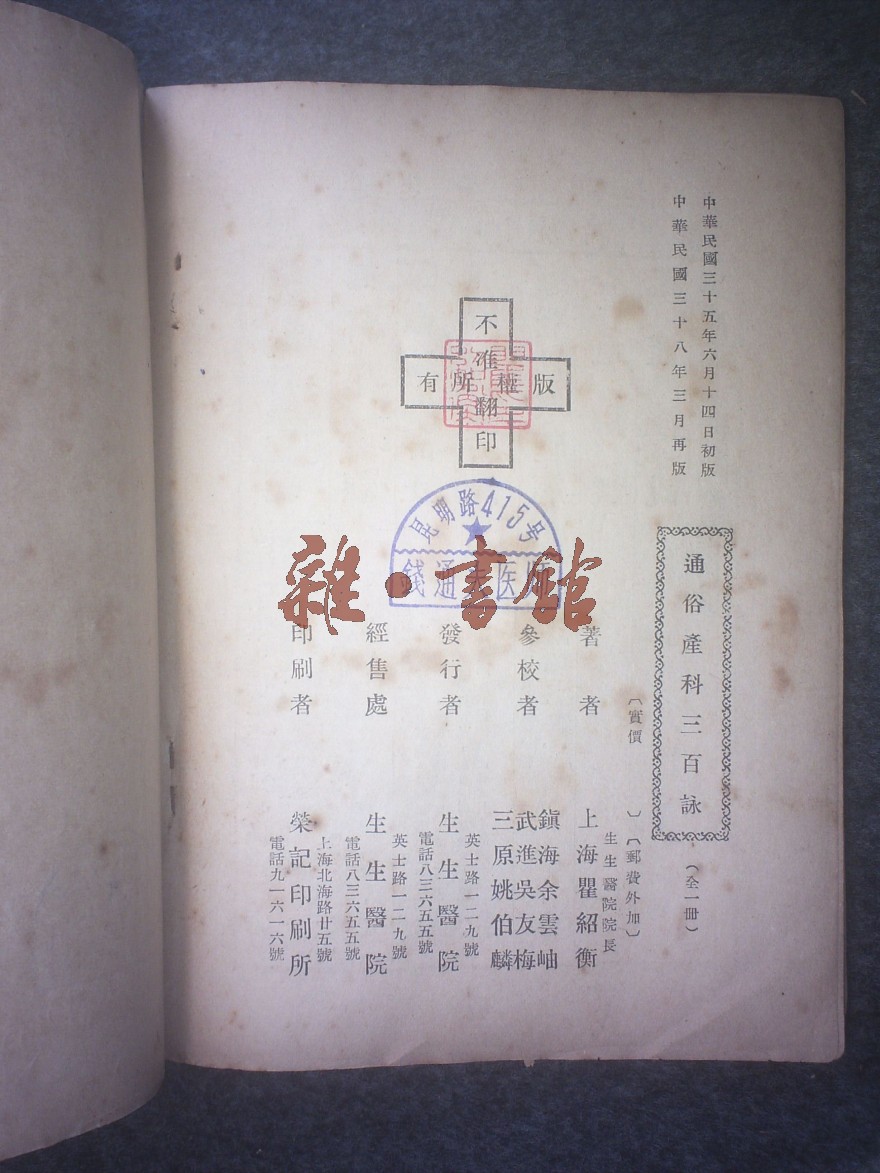 中華民國三十五年六月十四日初版
中華民國三十八年三月再版
通俗產科三百詠
（全一冊）
〔實價　　〕〔郵費外加〕
生生醫院院長
著者　上海瞿紹衡
參校者　鎮海余雲岫
武進吳友梅
三原姚伯麟
英士路一二九號
發行者　生生醫院
電話八三六五五號
英士路一二九號
經售處　生生醫院
電話八三六五五號
上海北海路廿五號
印刷者　榮記印刷所
電話九一六一六號
不准翻印
版權所有
昆明路415号
錢通 医師
雜·書館